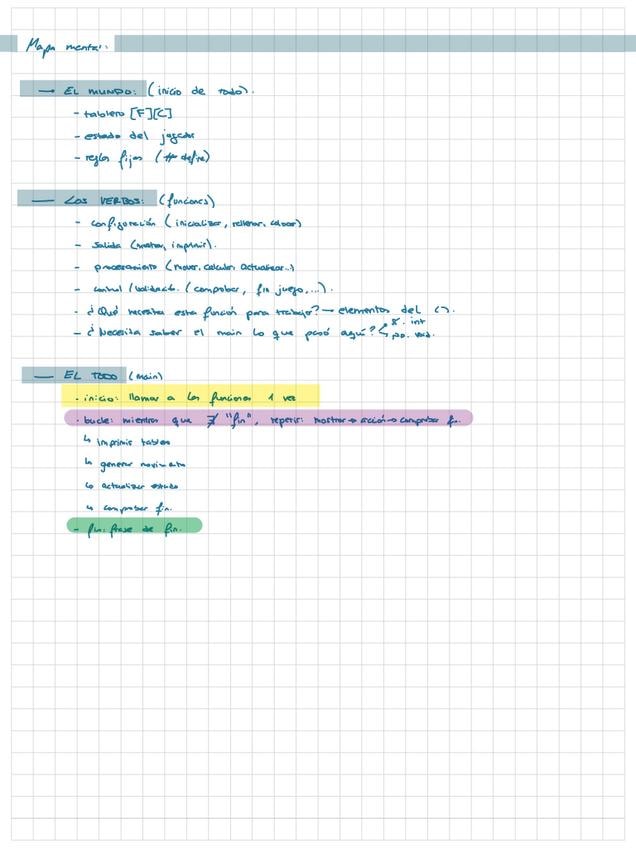 Mapa mental:
→ EL MUNDO: (inicio de todo).
- tablero [F][C]
- estado del jugador
- reglas fijas (# define)
— LOS VERBOS: (funciones)
- configuración (inicializar, rellenar, colocar)
- salida (mostrar, imprimir).
- procesamiento (mover, calcular, actualizar...)
- control / validació. (comprobar, fin juego,...).
- ¿Qué necesita esta función para trabajar? → elementos del ().
- ¿Necesita saber el main lo que pasó aquí? sí. int
no. void.
— EL TODO (main)
· inicio: llamar a las funciones 1 vez
· bucle: mientras que ∄ "fin", repetir: mostrar → acción → comprobar fin.
↳ imprimir tablero
↳ generar movimiento
↳ actualizar estado
↳ comprobar fin.
- fin: frase de fin.